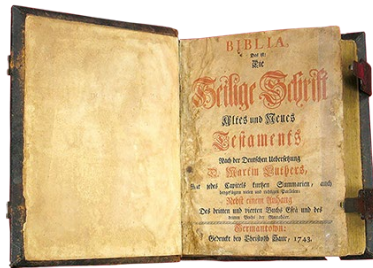 BIBLIA,
Das ist:
Die
Heilige Schrift
Altes und Neues
Testaments,
Nach der Deutschen Uebersetzung
D. Martin Luthers,
Mit jedes Capitels kurtzen Summarien, auch
beygefügten vielen und richtigen Parallelen;
Nebst einem Anhang
Des dritten und vierten Buchs Esrä und des
dritten Buchs der Maccabäer.
Germantown:
Gedruckt bey Christoph Saur, 1743.